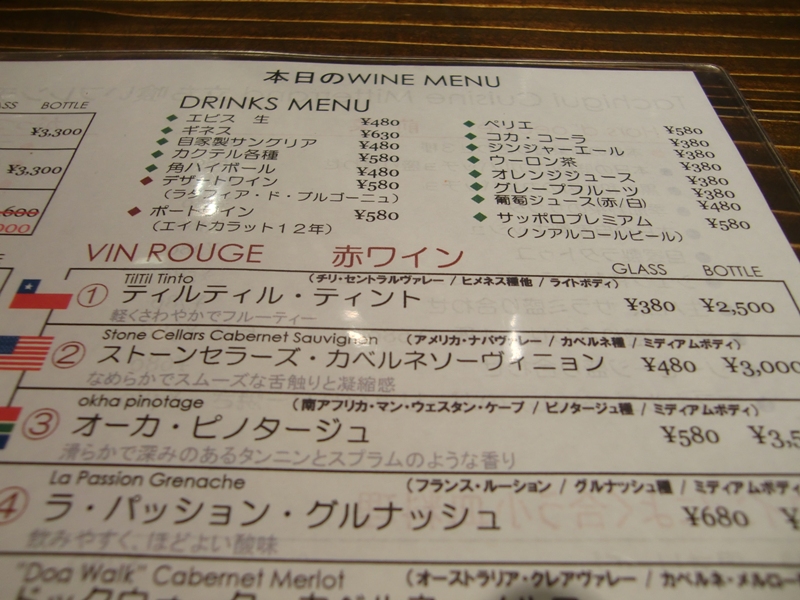 本日のWINE MENU
DRINKS MENU
エビス 生 ¥480
ギネス ¥630
自家製サングリア ¥480
カクテル各種 ¥580
角ハイボール ¥480
デザートワイン ¥580
(ラタフィア・ド・ブルゴーニュ)
ポートワイン ¥580
(エイトカラット12年)
ペリエ ¥580
コカ・コーラ ¥380
ジンジャーエール ¥380
ウーロン茶 ¥380
オレンジジュース ¥380
グレープフルーツ ¥380
葡萄ジュース(赤/白) ¥480
サッポロプレミアム ¥580
(ノンアルコールビール)
BOTTLE
¥3,300
¥3,300
VIN ROUGE 赤ワイン
GLASS BOTTLE
TilTil Tinto (チリ・セントラルヴァレー / ヒメネス種他 / ライトボディ)
① ティルティル・ティント ¥380 ¥2,500
軽くさわやかでフルーティー
Stone Cellars Cabernet Sauvignon (アメリカ・ナパヴァレー / カベルネ種 / ミディアムボディ)
② ストーンセラーズ・カベルネソーヴィニヨン ¥480 ¥3,000
なめらかでスムーズな舌触りと凝縮感
okha pinotage (南アフリカ・マン・ウェスタン・ケープ / ピノタージュ種 / ミディアムボディ)
③ オーカ・ピノタージュ ¥580 ¥3,5
滑らかで深みのあるタンニンとスプラムのような香り
La Passion Grenache (フランス・ルーション / グルナッシュ種 / ミディアムボディ
④ ラ・パッション・グルナッシュ ¥680 ¥
飲みやすく、ほどよい酸味
"Dog Walk" Cabernet Merlot (オーストラリア・クレアヴァレー / カベルネ・メルロー